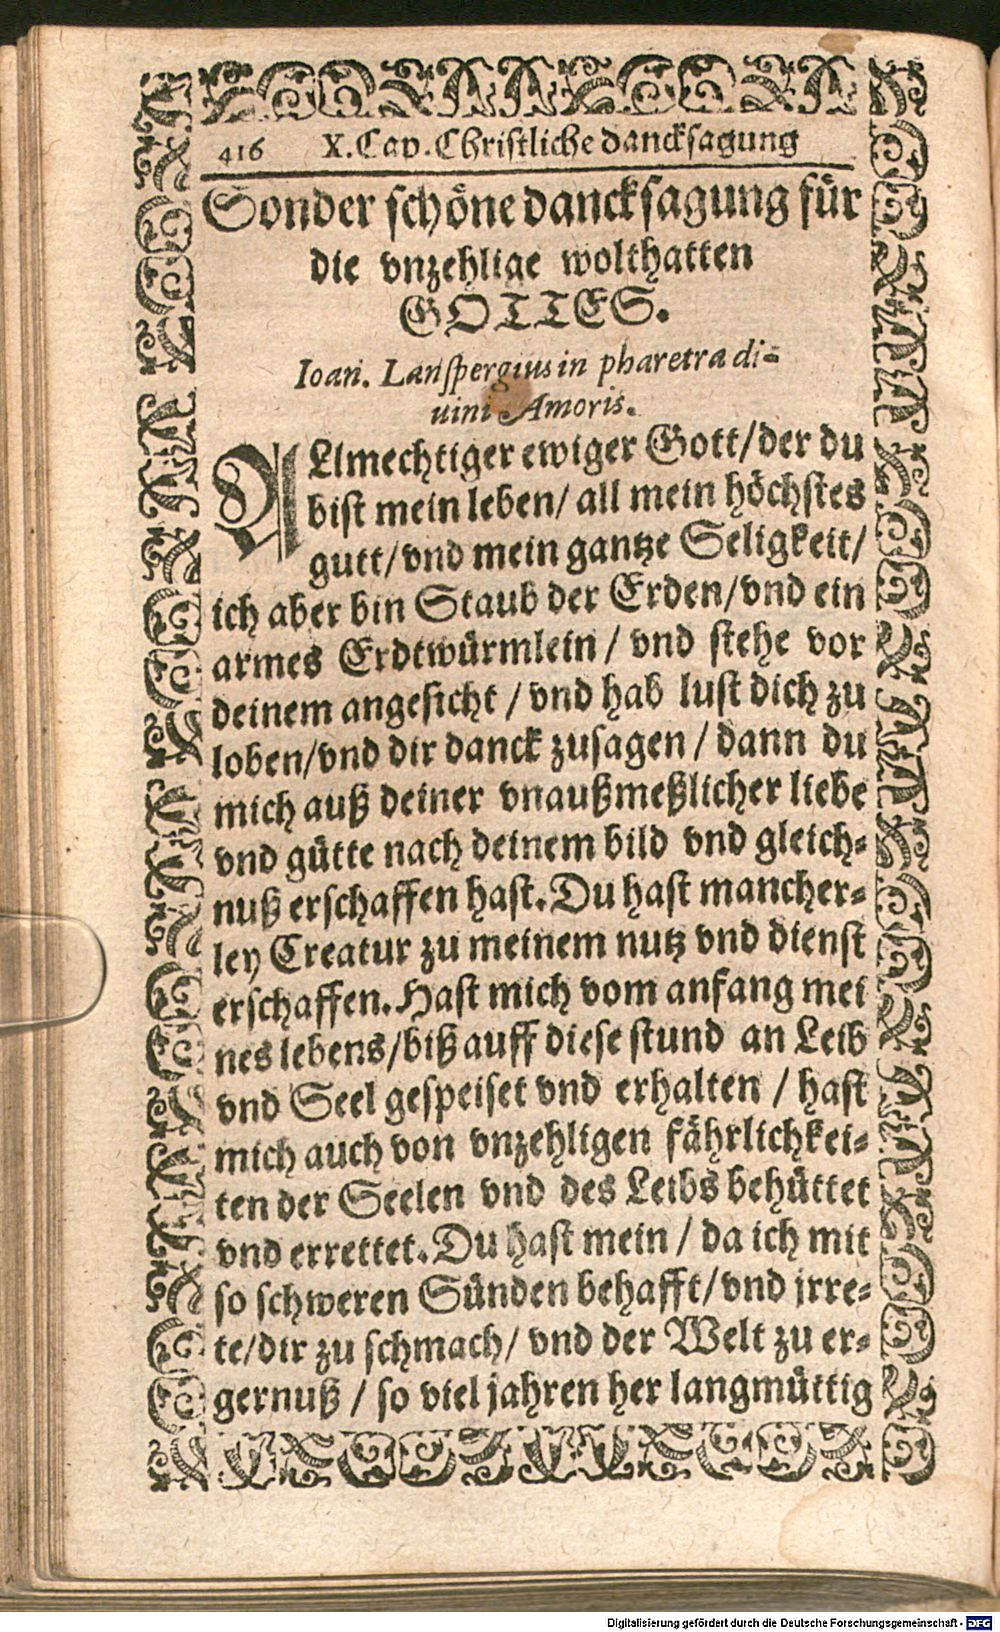 416 X. Cap. Christliche dancksagung
Sonder schöne dancksagung für
die vnzehlige wolthatten
GOTTES.
Ioan. Lanspergius in pharetra di-
uini Amoris.
ALlmechtiger ewiger Gott/der du
bist mein leben/ all mein höchstes
gutt/vnd mein gantze Seligkeit/
ich aber bin Staub der Erden/vnd ein
armes Erdtwürmlein / vnd stehe vor
deinem angesicht / vnd hab lust dich zu
loben/vnd dir danck zusagen / dann du
mich auß deiner vnaußmeßlicher liebe
vnd gütte nach deinem bild vnd gleich-
nuß erschaffen hast. Du hast mancher-
ley Creatur zu meinem nutz vnd dienst
erschaffen. Hast mich vom anfang mei
nes lebens/biß auff diese stund an Leib
vnd Seel gespeiset vnd erhalten / hast
mich auch von vnzehligen fährlichkei-
ten der Seelen vnd des Leibs behüttet
vnd errettet. Du hast mein / da ich mit
so schweren Sünden behafft/vnd jrre-
te/dir zu schmach/ vnd der Welt zu er-
gernuß / so viel jahren her langmüttig
Digitalisierung gefördert durch die Deutsche Forschungsgemeinschaft - DFG